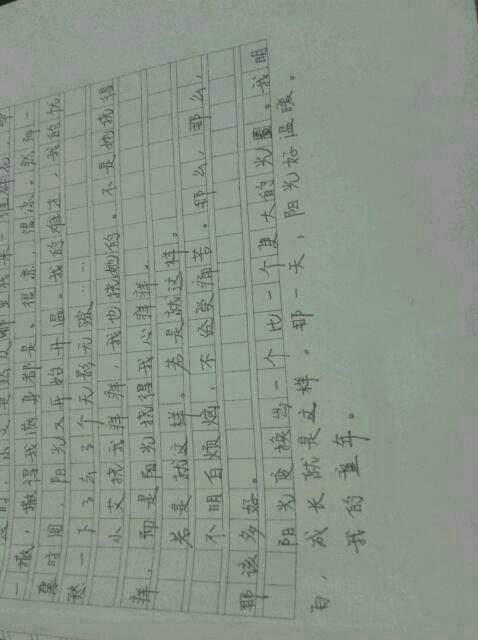 一撒，撒得我满身都是。很凉，很凉。然而一
霎时间，阳光又开始升温。我的难过，我的忧
愁一下子去了个无影无踪……
小艾挠我痒痒，我也挠她的。不是她挠得
痒，而是阳光挠得我心痒痒。
若是就这样。若是就这样。
不明白烦恼，不经受痛苦。那么，那么，
那该多好。
阳光变换出一个比一个更大的光圈。我明
白，成长就是这样。那一天，阳光好温暖。
我的童年。